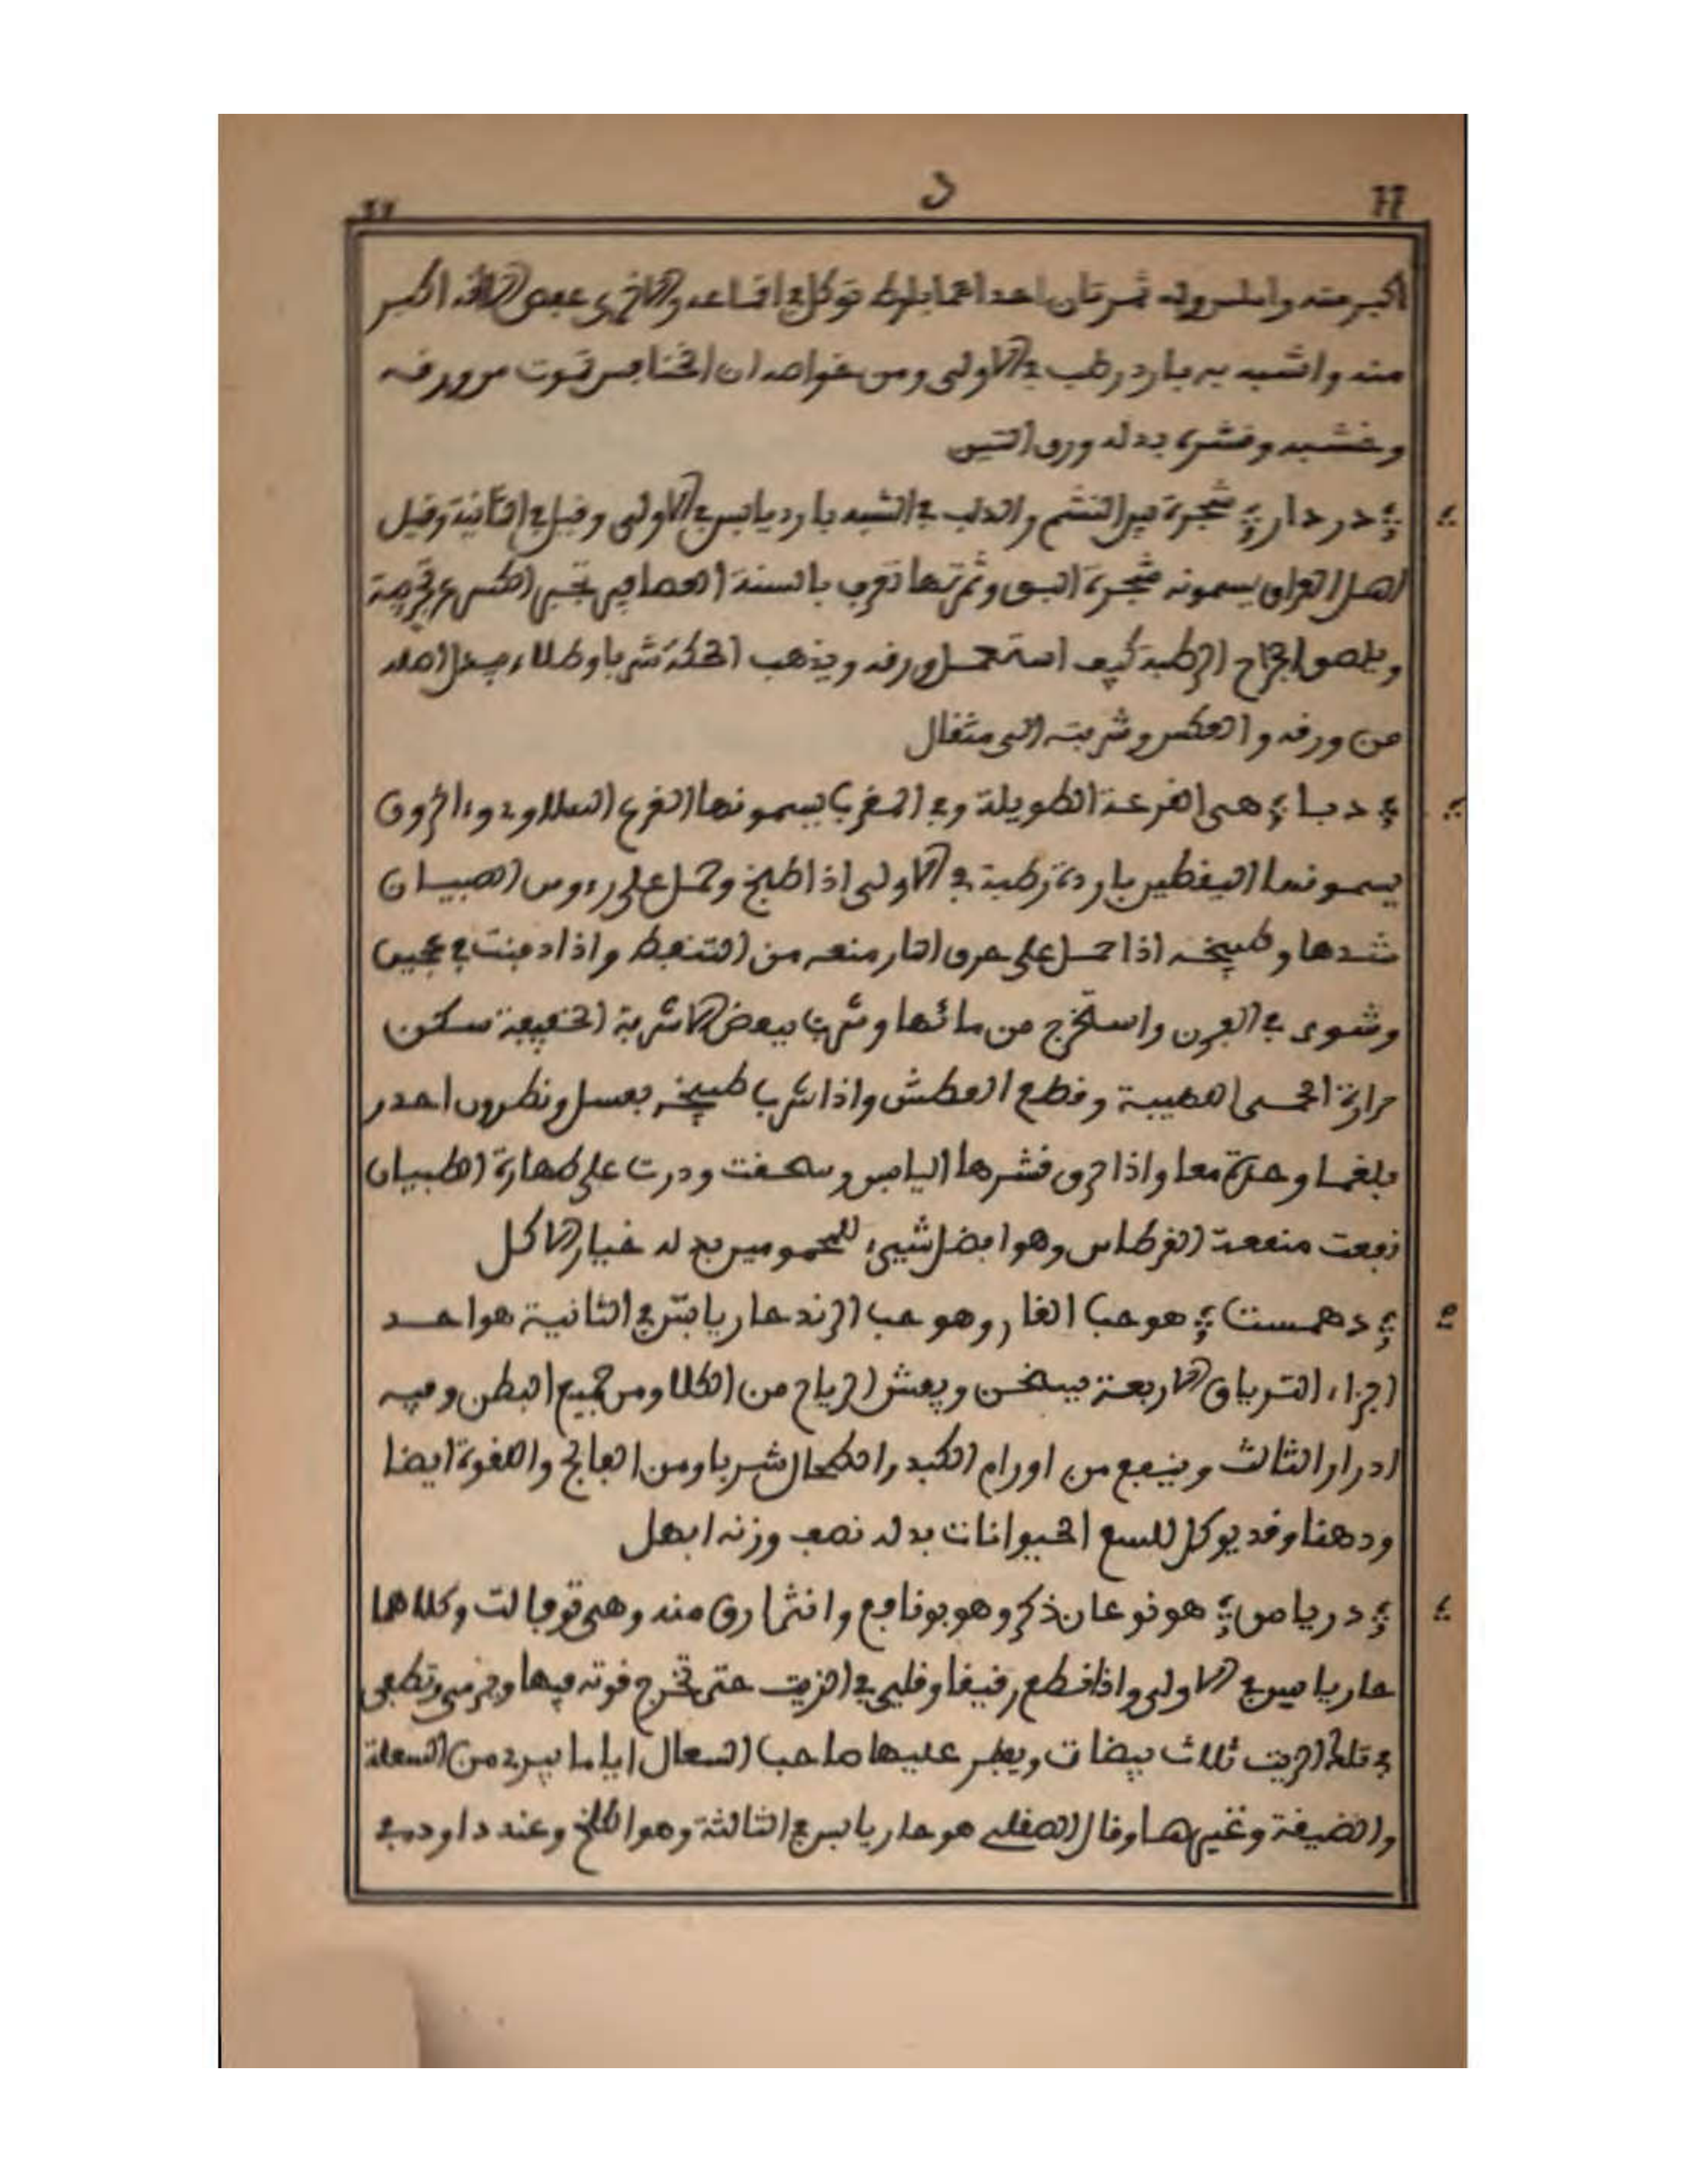 د
اكبر منه واملس وله ثمرتان احداهما بلوط توكل في افماعه والاخرى عفص الا انه اكبر
منه واشبه به بارد رطب في الاولى ومن خواصه ان الخنافس تموت من ورقه
وخشبه وقشره بدله ورق التين
دردار شجرة بين النشم والدلب في الشبه بارد يابس في الاولى وقيل في الثانية وقيل
اهل العراق يسمونه شجرة البق وثمرتها تعرف بالسنة العصافير تجبر الكسر
ويلصق الجراح الرطبة كيف استعمل ورقه ويذهب الحكة شربا وطلاء بدل اصله
من ورقه والعكس وشربته الى مثقال
دبا هي القرعة الطويلة وفي المغرب يسمونها القرع السلاوي واالروق
يسمونها اليقطين باردة رطبة في الاولى اذا طبخ وحمل على رءوس الصبيان
شدها وطبيخه اذا حمل على حرق النار منعه من التنفط واذا دفنت في عجين
وشوى في الفرن واستخرج من مائها وشرب ببعض الاشربة الخفيفة سكن
حرارة الحمى الصيبة وقطع العطش واذا شرب طبيخه بعسل ونطرون احدر
بلغما ومرة معا واذا حرق قشرها اليابس وسحقت ودرت على طهارة الصبيان
نفعت منفعة القرطاس وهو افضل شيىء للمحمومين بدله خيار الاكل
دهمست هو حب الغار وهو حب الرند حار يابس في الثانية هو احد
اجزاء الترياق الاربعة يسخن ويفش الرياح من الكلا ومن جميع البطن وفيه
ادرار الثالث وينفع من اورام الكبد والطحال شربا ومن الفالج واللقوة ايضا
ودهنا وقد يوكل للسع الحيوانات بدله نصف وزنه ابهل
درياس هو نوعان ذكر وهو بونافع وانثى ارق منه وهي توفالت وكلاهما
حار يابس في الاولى واذا قطع رقيقا وقلي في الزيت حتى تخرج قوته فيها ويرمى وتطفى
في تلك الزيت ثلاث بيضات ويفطر عليها صاحب السعال اياما يبرء من السعلة
والضيقة وغيرها وقال الصقلي هو حار يابس في الثالثة وهو الملخ وعند داود في